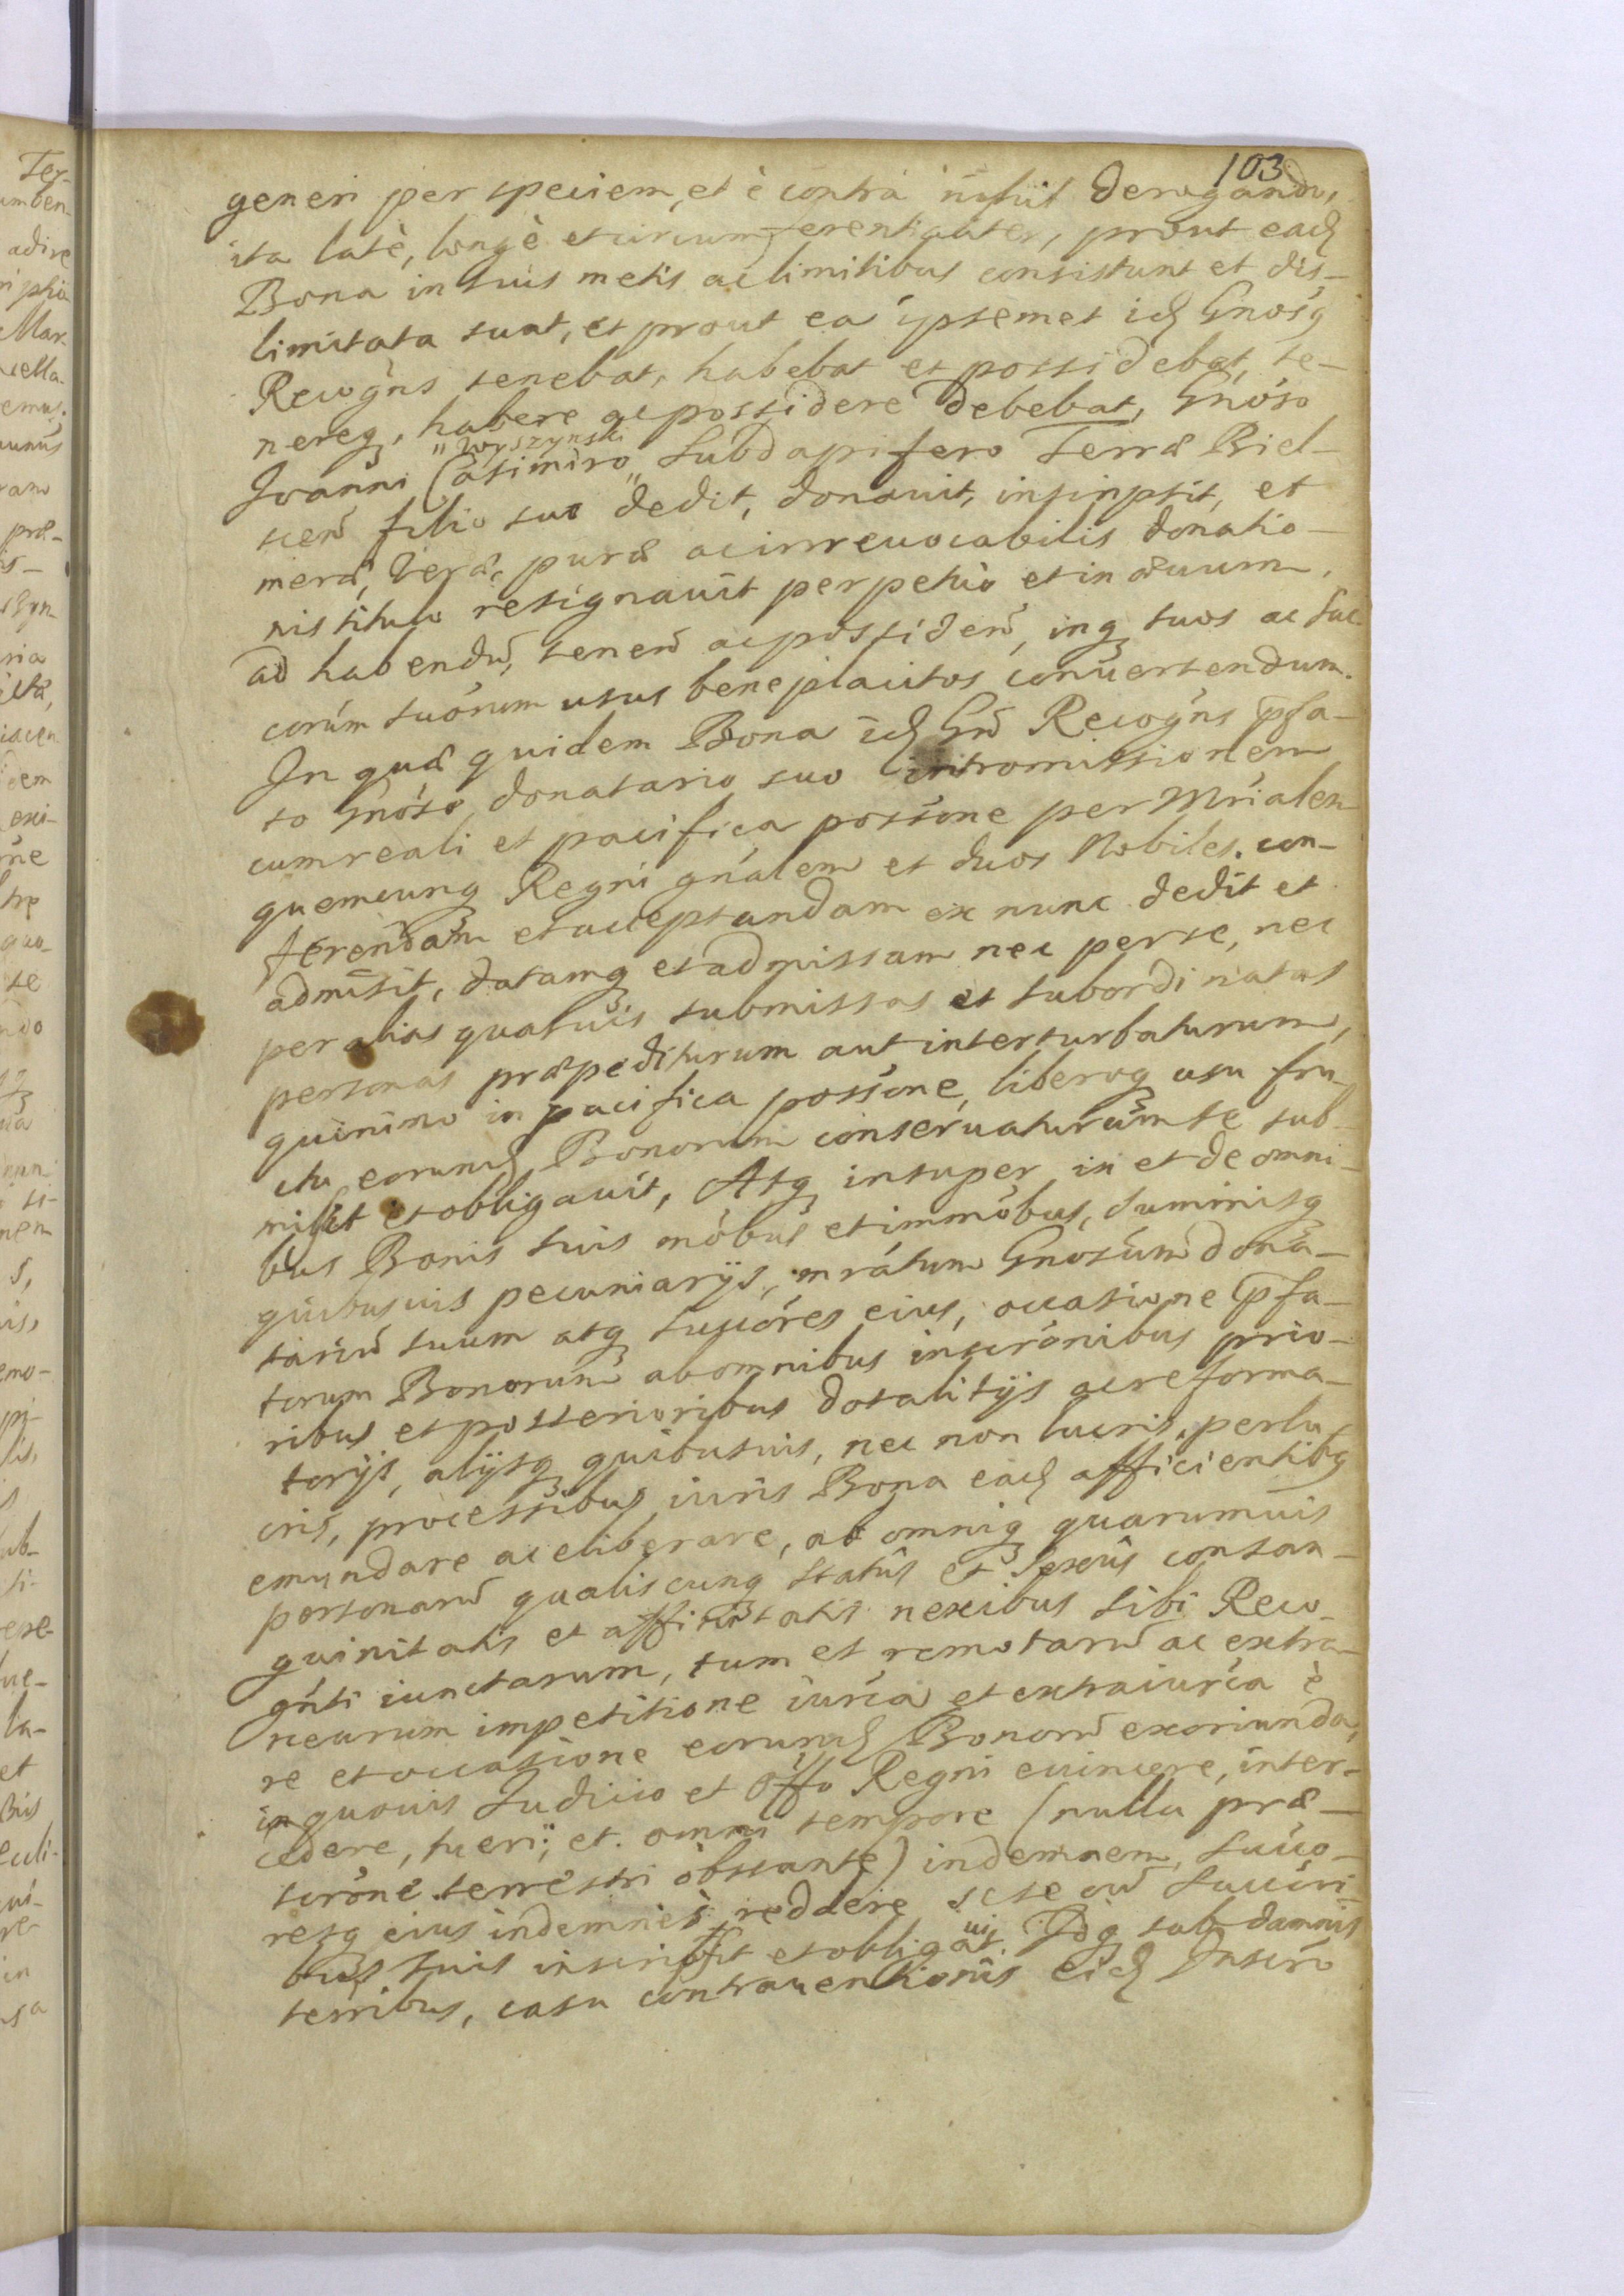 103.
generi per speciem, et è contra nihil derogando,
ita latè, longè et circumferentialiter, prout eadẽ
Bona in suis metis ac limitibus consistunt et dis-
limitata sunt, et prout ea ipsemet idẽ Gnosq
Recogñs tenebat, habebat et possidebat, te-
nereq, habere ac possidere debebat, Gnóso
"Wyszynski
Joanni Casimiro " Subdapifero Terræ Biel-
scen̄ filio suo dedit, donauit, inscripsit, et
meræ, veræ, puræ ac irreuocabilis donatio-
nis titulo resignauit perpetuò et in æuum,
ad habendũ, tenen̄ ac possiden̄, inq suos ac suc-
corúm suórum usus beneplacitos conuertendum.
In quæ quidem Bona idẽ Gn̄ Recogñs p̄fa-
to Gnóso donatario suo intromissionem
cum reali et pacifica possone per Mrialem
quemcunq Regni gnálem et duos Nobiles con-
ferendam et acceptandam ex nunc dedit et
admisit, datamq et admissam nec per se, nec
per alias quasuis submissas et subordinatas
personas præpediturum aut interturbaturum,
quinimo in pacifica possóne, liberoq usu fru-
ctu eorundẽ Bonorum conseruaturum se sub-
misit et obligauit, Atq insuper in et de omni-
bus Bonis suis móbus et immóbus, summisq
quibusuis pecuniarijs, mrátum Gnosum dona-
tariũ suum atq succóres eius, occasione p̄fa-
torum Bonorum ab omnibus inscrónibus prio-
ribus et posterioribus dotalitijs ac reforma-
torijs, alijsq quibusuis, nec non lucris, perlu-
cris, processibus iuris Bona eadẽ afficientibq
emundare ac eliberare, ab omniq quarumuis
personarũ qualiscunq statûs et sexûs consan-
guinitatis et affinitatis nexibus sibi Reco-
gñti iunctarum, tum et remotarũ ac extra-
nearum impetitione iuría et extraiuría è
re et occasione eorundẽ Bonorũ exoriunda,
in quouis Judicio et Offo Regni euincere, inter-
cedere, tueri; et omni tempore (nulla præ-
scróne terrestri obstante) indemnem, succo-
resq eius indemnes reddere sese cũ succóri-
bus suis inscripsit et obligauit. Idq sub damnis
terribus, casu contrauentionis eidẽ Inscró